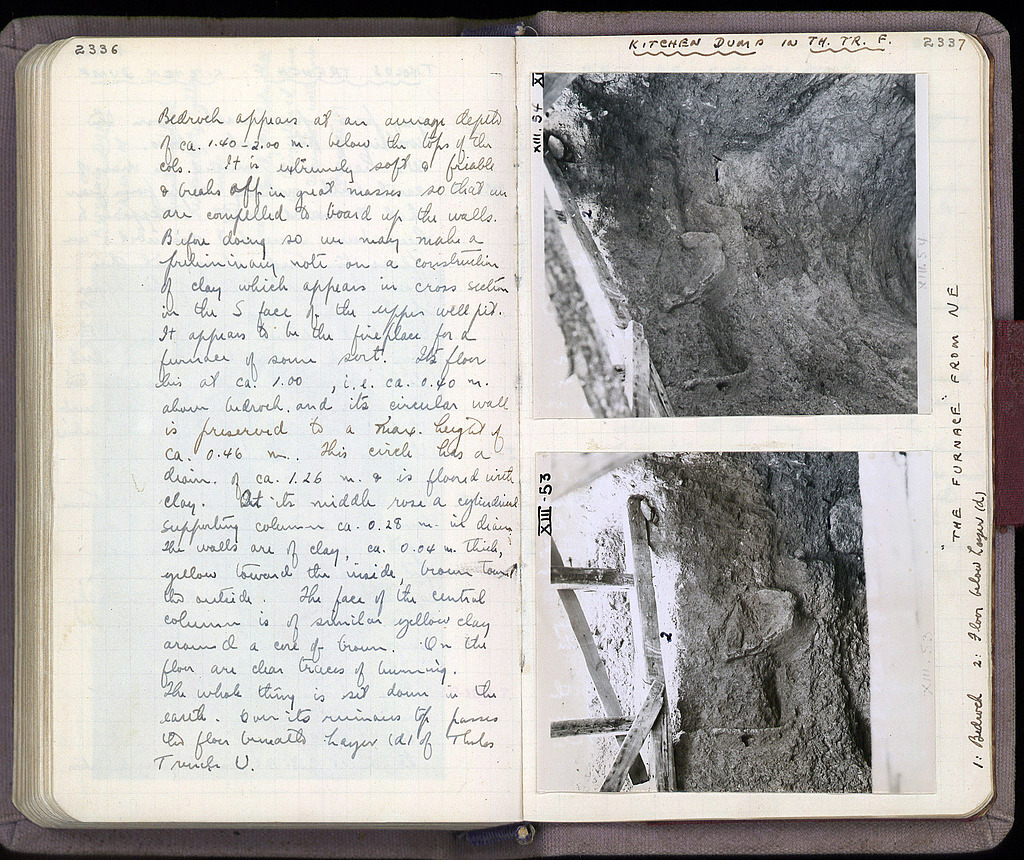 2336
Bedrock appears at an average depth
of ca. 1.40-2.00 m. below the tops of the
cols. It is extremely soft & friable
& breaks off in great masses so that we
are compelled to board up the walls.
Before doing so we may make a
preliminary note on a construction
of clay which appears in cross section
in the S face of the upper well pit.
It appears to be the fireplace for a
furnace of some sort. Its floor
lies at ca. 1.00 , i.e. ca. 0.40 m.
above bedrock, and its circular wall
is preserved to a max. height of
ca. 0.46 m. This circle has a
diam. of ca. 1.26 m. & is floored with
clay. At its middle rose a cylindrical
supporting column ca. 0.28 m. in diam.
The walls are of clay, ca. 0.04 m. thick,
yellow toward the inside, brown toward
the outside. The face of the central
column is of similar yellow clay
around a core of brown. On the
floor are clear traces of burning.
The whole thing is set down in the
earth. Over its ruinous top passes
the floor beneath Layer (d) of Tholos
Trench U.
KITCHEN DUMP IN TH. TR. F. 2337
XIII. 54
1
2
XIII. 54
XIII-53
2
XIII. 53
"THE FURNACE" FROM NE
1: Bedrock 2: Floor below Layer (d)